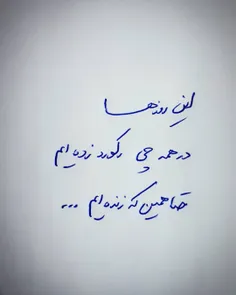 این روزها
در همه چی رکورد زده ایم
حتا همین که زنده ایم ...